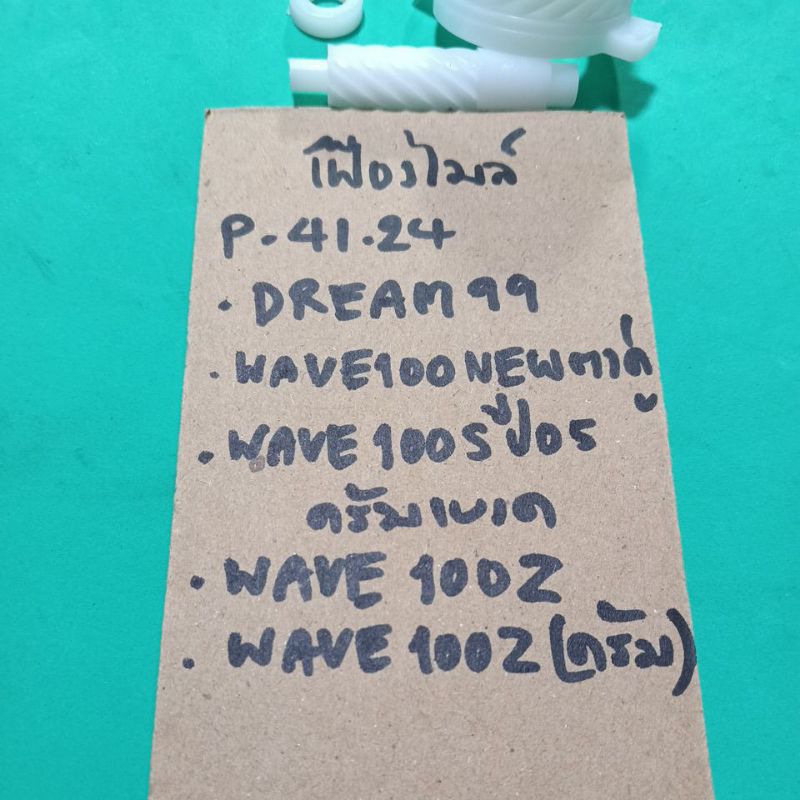 เฟืองไมล์
P.41.24
. DREAM 99
. WAVE100NEWตาคู่
. WAVE 100S ปี05
ดรัมเบรค
. WAVE 100Z
. WAVE 100Z (ดรัม)